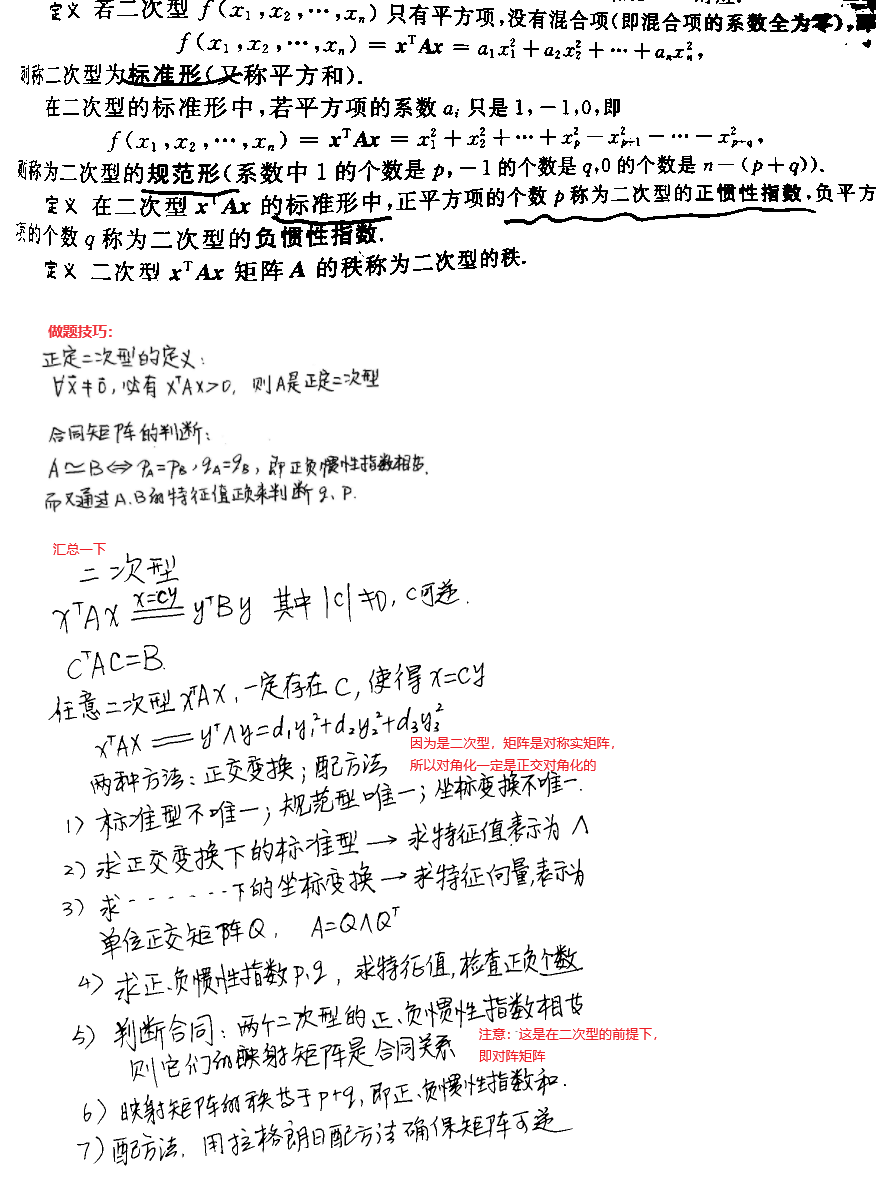 定义 若二次型 f(x₁,x₂,⋯,xₙ) 只有平方项,没有混合项(即混合项的系数全为零),即
f(x₁,x₂,⋯,xₙ) = xᵀAx = a₁x₁² + a₂x₂² + ⋯ + aₙxₙ²,
则称二次型为标准形(又称平方和).
在二次型的标准形中,若平方项的系数 aᵢ 只是 1,-1,0,即
f(x₁,x₂,⋯,xₙ) = xᵀAx = x₁² + x₂² + ⋯ + xₚ² - xₚ₊₁² - ⋯ - x²_{p+q},
则称为二次型的规范形(系数中 1 的个数是 p,-1 的个数是 q,0 的个数是 n-(p+q)).
定义 在二次型 xᵀAx 的标准形中,正平方项的个数 p 称为二次型的正惯性指数,负平方
项的个数 q 称为二次型的负惯性指数.
定义 二次型 xᵀAx 矩阵 A 的秩称为二次型的秩.
做题技巧:
正定二次型的定义:
∀x⃗≠0⃗, 必有 xᵀAx>0, 则A是正定二次型
合同矩阵的判断:
A≃B⇔P_A=P_B, q_A=q_B, 即正负惯性指数相等.
而又通过A、B的特征值正负来判断 q、p.
汇总一下
二次型
xᵀAx x=Cy yᵀBy 其中|C|≠0, C可逆.
CᵀAC=B.
任意二次型xᵀAx, 一定存在C, 使得x=Cy
xᵀAx = yᵀΛy=d₁y₁²+d₂y₂²+d₃y₃²
因为是二次型，矩阵是对称实矩阵，
所以对角化一定是正交对角化的
两种方法: 正交变换; 配方法
1) 标准型不唯一; 规范型唯一; 坐标变换不唯一.
2) 求正交变换下的标准型 → 求特征值表示为 Λ
3) 求······下的坐标变换 → 求特征向量,表示为
单位正交矩阵Q, A=QΛQᵀ
4) 求正、负惯性指数p,q, 求特征值,检查正负个数
5) 判断合同: 两个二次型的正、负惯性指数相等
则它们的映射矩阵是合同关系
注意：这是在二次型的前提下，
即对阵矩阵
6) 映射矩阵的秩等于p+q, 即正、负惯性指数和.
7) 配方法, 用拉格朗日配方法确保矩阵可逆